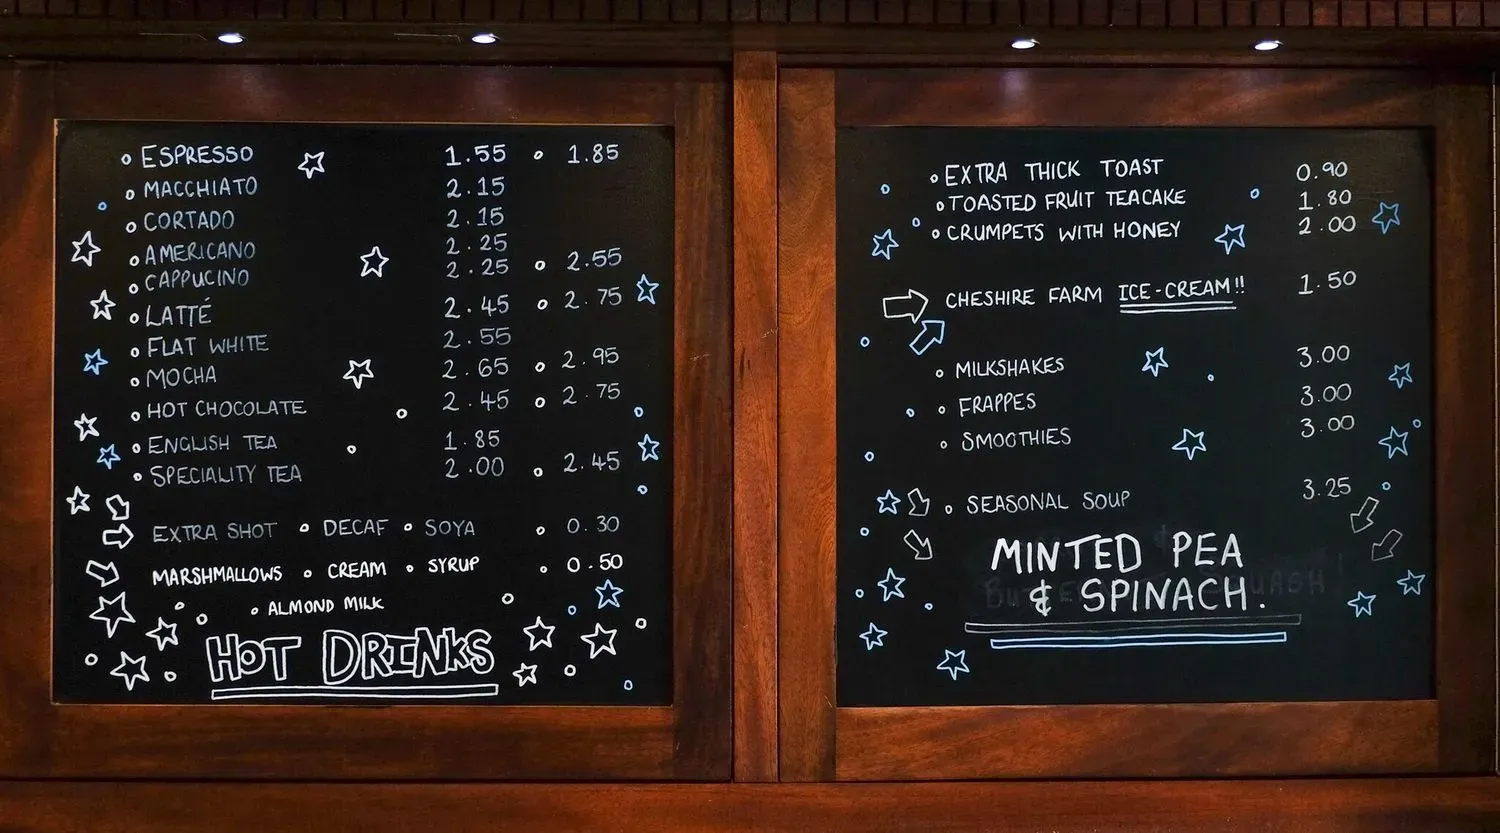 ESPRESSO 1.55 1.85
MACCHIATO 2.15
CORTADO 2.15
AMERICANO 2.25
CAPPUCINO 2.25 2.55
LATTÉ 2.45 2.75
FLAT WHITE 2.55
MOCHA 2.65 2.95
HOT CHOCOLATE 2.45 2.75
ENGLISH TEA 1.85
SPECIALITY TEA 2.00 2.45
EXTRA SHOT DECAF SOYA 0.30
MARSHMALLOWS CREAM SYRUP 0.50
ALMOND MILK
HOT DRINKS
EXTRA THICK TOAST 0.90
TOASTED FRUIT TEACAKE 1.80
CRUMPETS WITH HONEY 2.00
CHESHIRE FARM ICE-CREAM!! 1.50
MILKSHAKES 3.00
FRAPPES 3.00
SMOOTHIES 3.00
SEASONAL SOUP 3.25
MINTED PEA
& SPINACH.